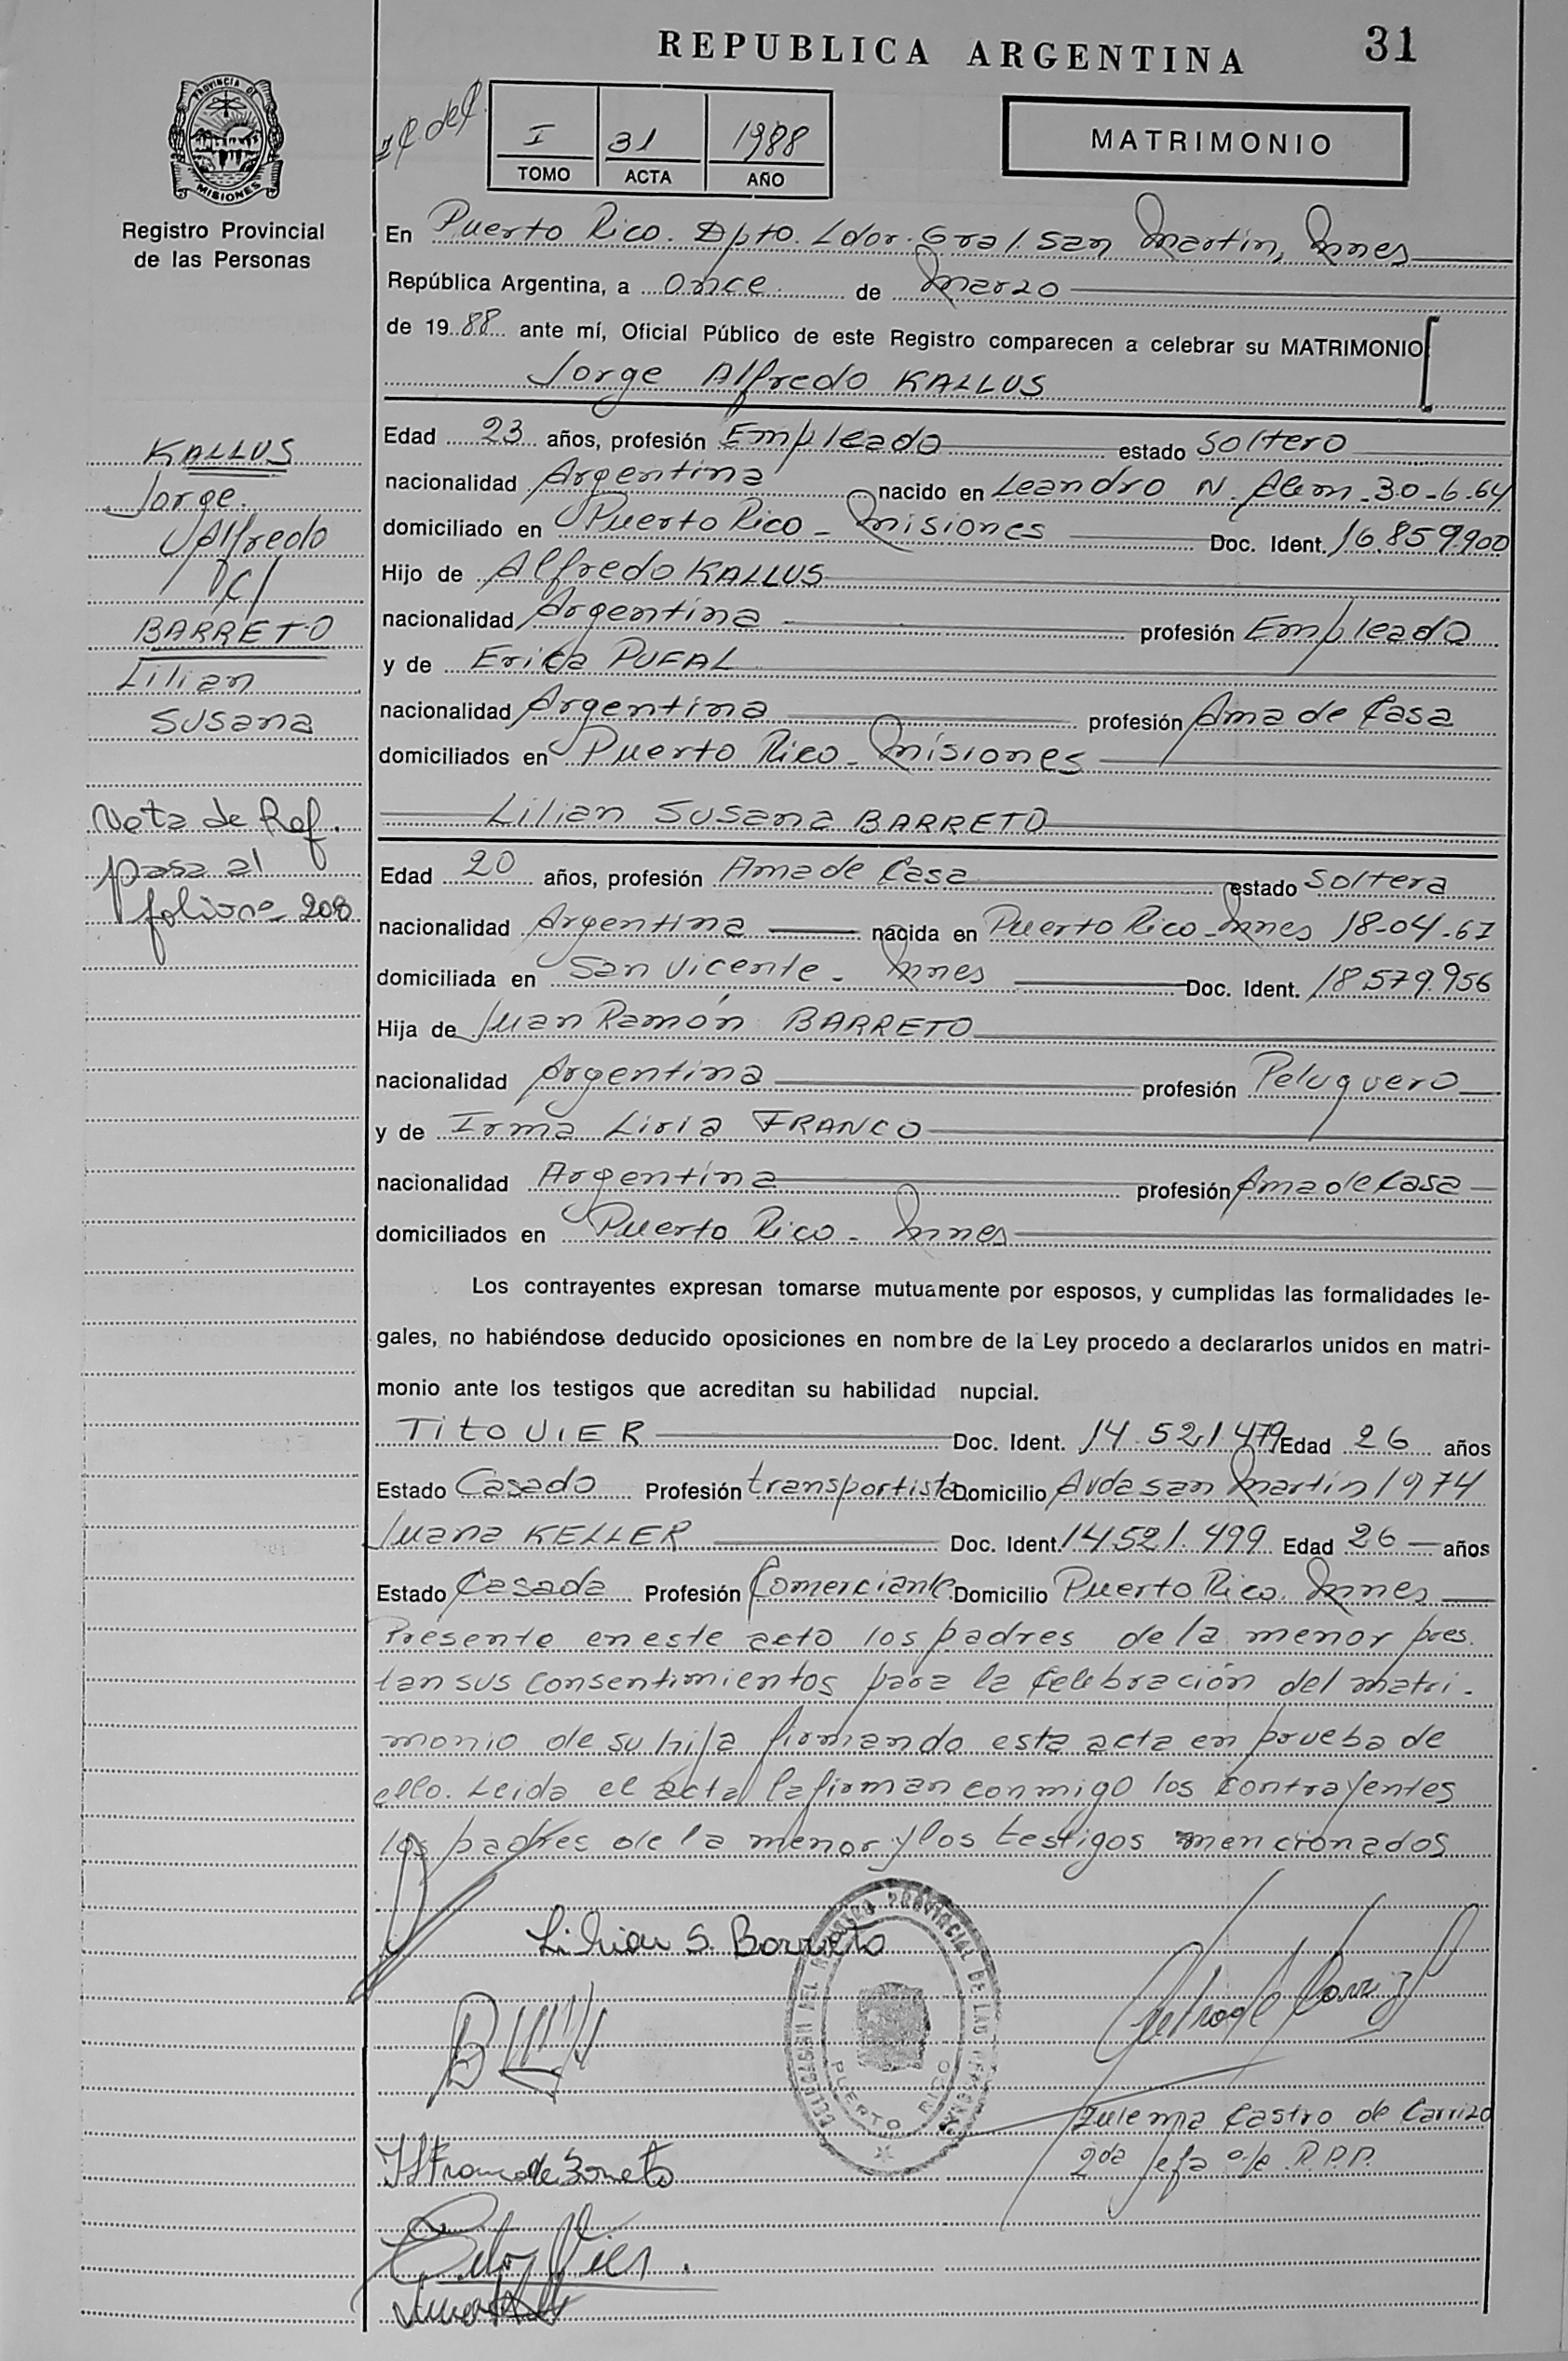 REPUBLICA ARGENTINA
31
PROVINCIA DE
MISIONES
Registro Provincial
de las Personas
I 31 1988
TOMO ACTA AÑO
MATRIMONIO
En Puerto Rico. Dpto. Ldor. Gral. San Martín, Mnes
República Argentina, a once de Marzo
de 1988 ante mí, Oficial Público de este Registro comparecen a celebrar su MATRIMONIO
Jorge Alfredo KALLUS
Edad 23 años, profesión Empleado estado Soltero
nacionalidad Argentina nacido en Leandro N. Alem - 30-6-64
domiciliado en Puerto Rico - Misiones Doc. Ident. 16.859.900
Hijo de Alfredo KALLUS
nacionalidad Argentina profesión Empleado
y de Erica PUFAL
nacionalidad Argentina profesión Ama de Casa
domiciliados en Puerto Rico - Misiones
Lilian Susana BARRETO
Edad 20 años, profesión Ama de Casa estado Soltera
nacionalidad Argentina nacida en Puerto Rico - Mnes 18-04-67
domiciliada en San Vicente - Mnes Doc. Ident. 18.579.956
Hija de Juan Ramón BARRETO
nacionalidad Argentina profesión Peluquero
y de Irma Liria FRANCO
nacionalidad Argentina profesión Ama de Casa
domiciliados en Puerto Rico - Mnes
Los contrayentes expresan tomarse mutuamente por esposos, y cumplidas las formalidades le-
gales, no habiéndose deducido oposiciones en nombre de la Ley procedo a declararlos unidos en matri-
monio ante los testigos que acreditan su habilidad nupcial.
Tito VIER Doc. Ident. 14.521.479 Edad 26 años
Estado Casado Profesión transportista Domicilio Avda San Martín 1974
Juana KELLER Doc. Ident. 14521.499 Edad 26 años
Estado Casada Profesión Comerciante Domicilio Puerto Rico. Mnes
Presente en este acto los padres de la menor pres.
tan sus consentimientos para la celebración del matri-
monio de su hija firmando esta acta en prueba de
ello. Leida el acta la firman conmigo los contrayentes
los padres de la menor y los testigos mencionados
KALLUS
Jorge
Alfredo
c/
BARRETO
Lilian
Susana
Nota de Ref.
pasa al
folio 208
Lilian S. Barreto
DELEGACION DEL REGISTRO PROVINCIAL DE LAS PERSONAS
PUERTO RICO
Zulema Castro de Carrizo
2da Jefa o/e R.P.P.
I L Franco de Barreto
Tito Vier